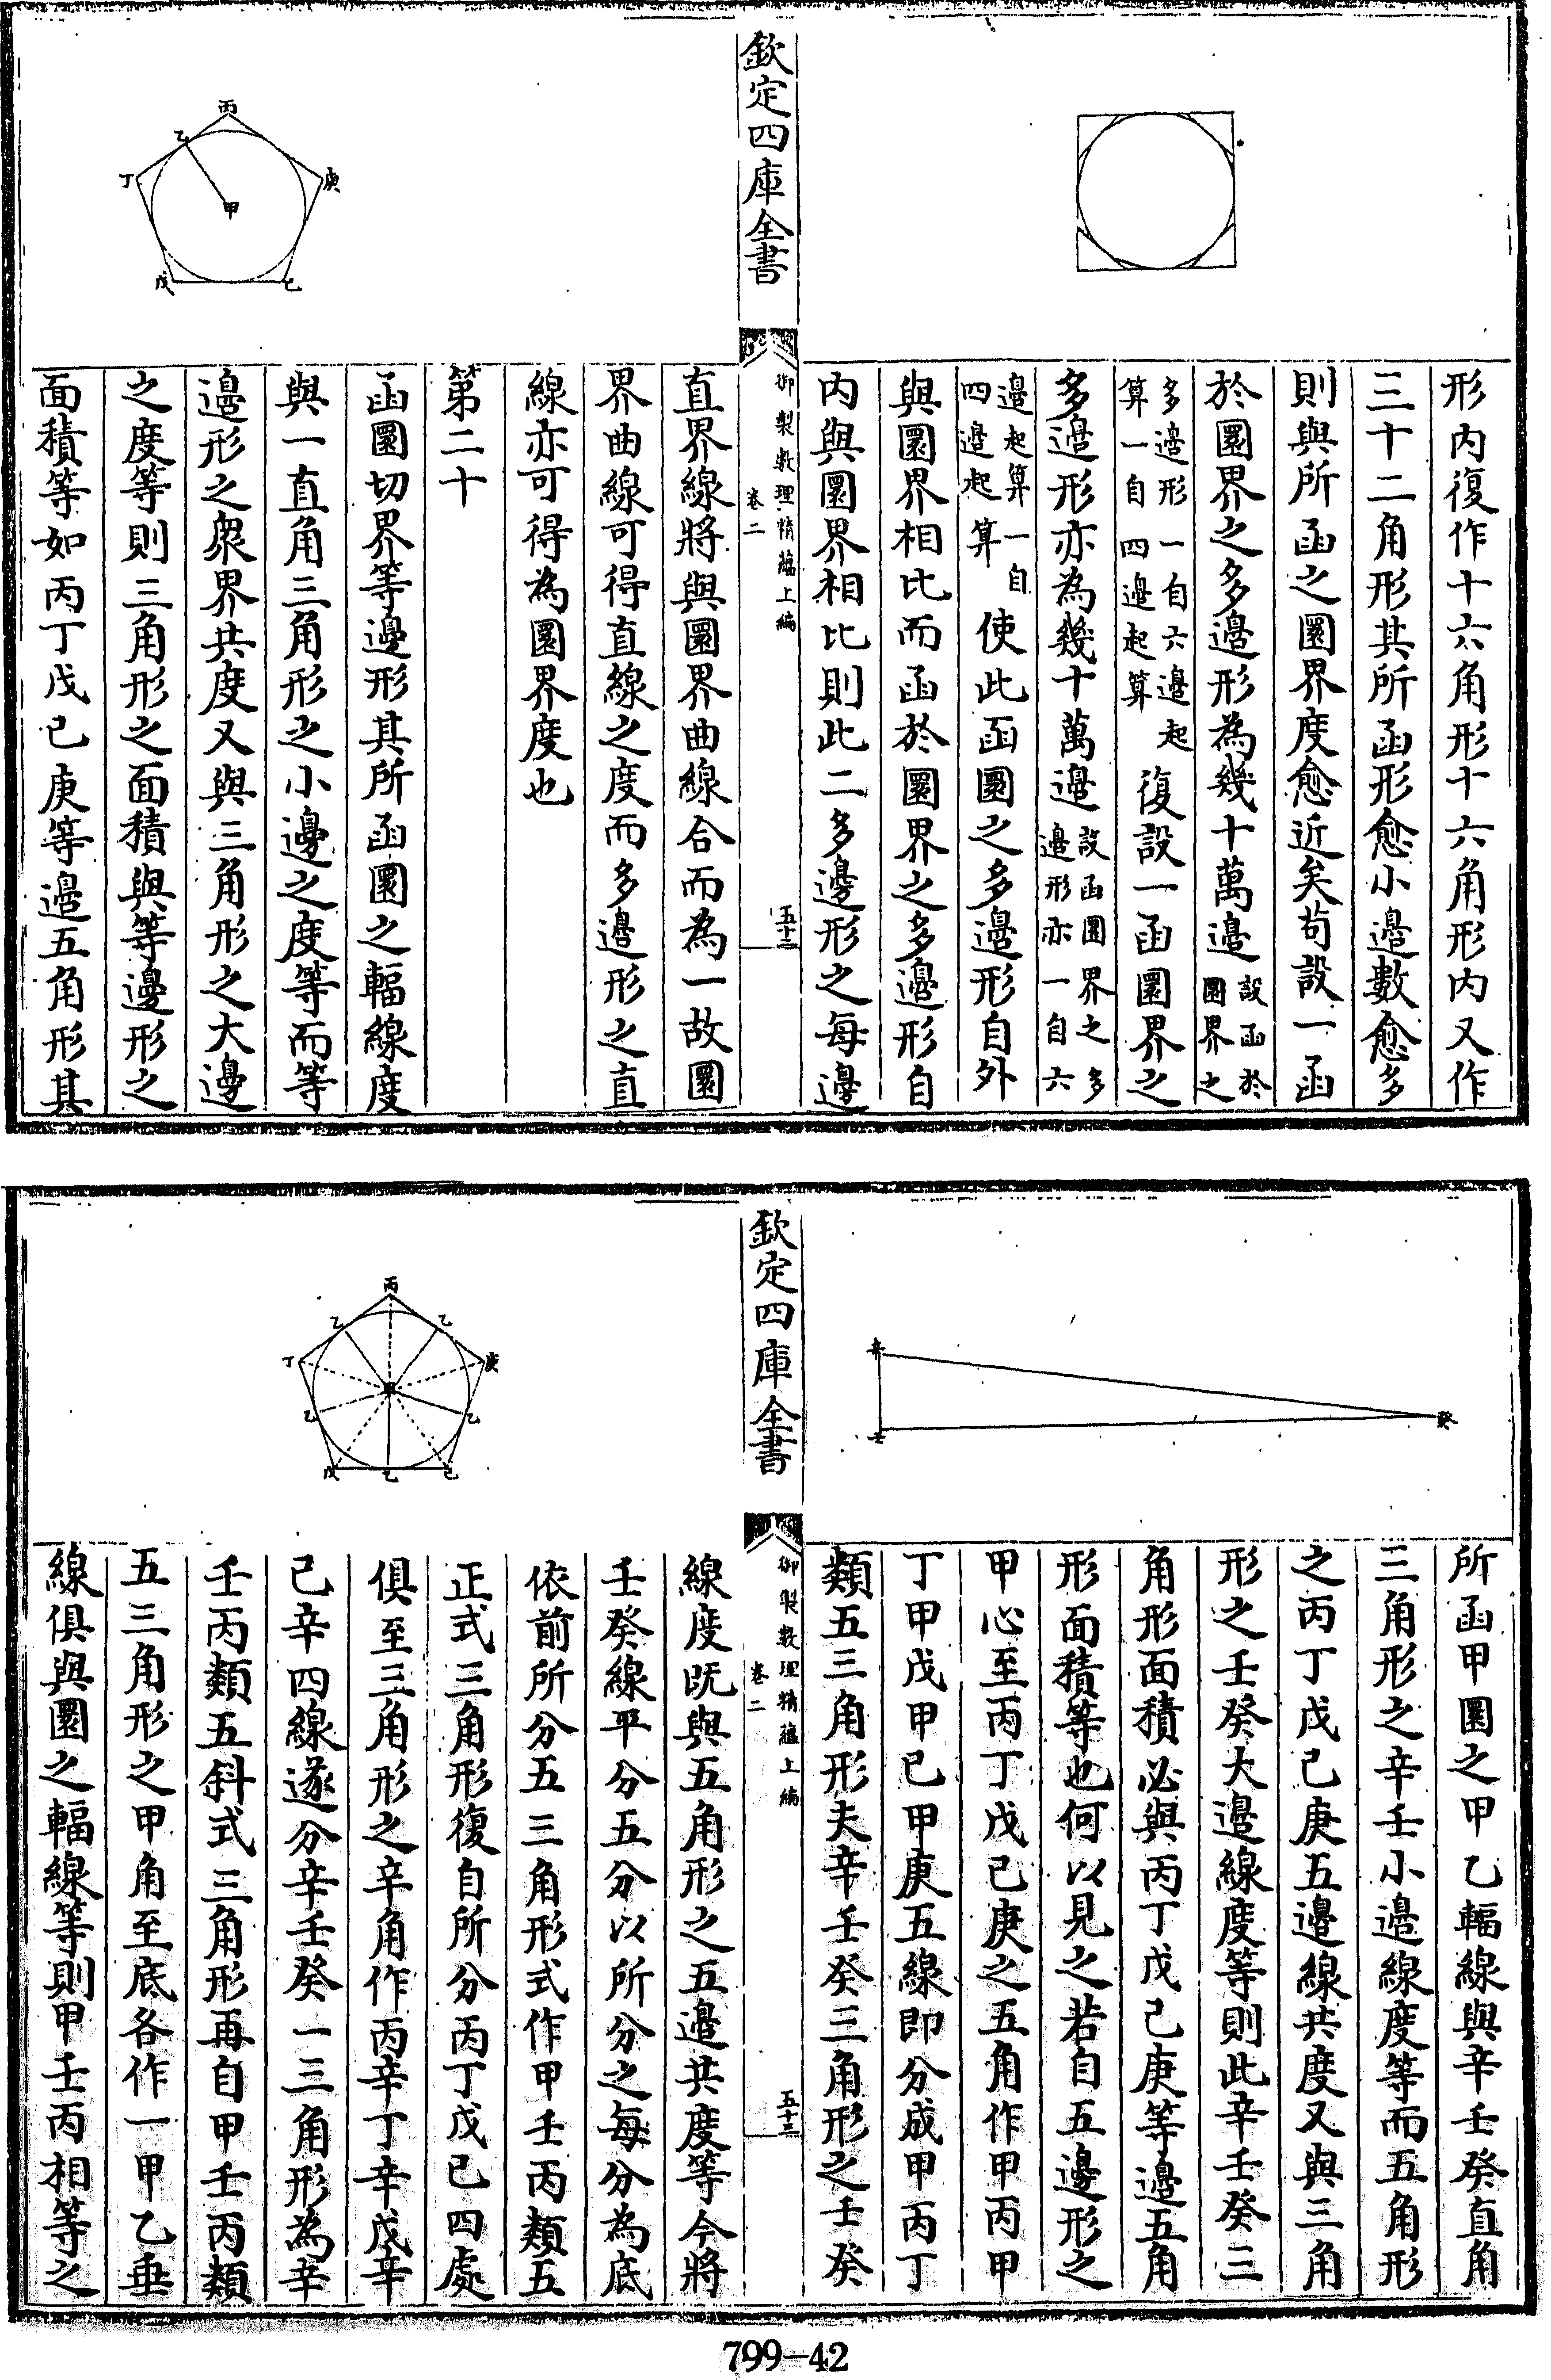 形内復作十六角形十六角形内又作
三十二角形其所函形愈小邊數愈多
則與所函之圜界度愈近矣苟設一函
於圜界之多邊形為幾十萬邊設函於圜界之
多邊形一自六邊起算一自四邊起算復設一函圜界之
多邊形亦為幾十萬邊設函圜界之多邊形亦一自六
邊起算一自四邊起算使此函圜之多邊形自外
與圜界相比而函於圜界之多邊形自
内與圜界相比則此二多邊形之每邊
欽定四庫全書
御製數理精藴上編
卷二
五十三
直界線將與圜界曲線合而為一故圜
界曲線可得直線之度而多邊形之直
線亦可得為圜界度也
第二十
函圜切界等邊形其所函圜之輻線度
與一直角三角形之小邊之度等而等
邊形之衆界共度又與三角形之大邊
之度等則三角形之面積與等邊形之
面積等如丙丁戊己庚等邊五角形其
丙
乙
丁
庚
甲
戊
己
所函甲圜之甲乙輻線與辛壬癸直角
三角形之辛壬小邊線度等而五角形
之丙丁戊己庚五邊線共度又與三角
形之壬癸大邊線度等則此辛壬癸三
角形面積必與丙丁戊己庚等邊五角
形面積等也何以見之若自五邊形之
甲心至丙丁戊己庚之五角作甲丙甲
丁甲戊甲己甲庚五線即分成甲丙丁
類五三角形夫辛壬癸三角形之壬癸
辛
壬
癸
欽定四庫全書
御製數理精藴上編
卷二
五十三
線度既與五角形之五邊共度等今將
壬癸線平分五分以所分之每分為底
依前所分五三角形式作甲壬丙類五
正式三角形復自所分丙丁戊己四處
俱至三角形之辛角作丙辛丁辛戊辛
己辛四線遂分辛壬癸一三角形為辛
壬丙類五斜式三角形再自甲壬丙類
五三角形之甲角至底各作一甲乙垂
線俱與圜之輻線等則甲壬丙相等之
丙
乙
乙
丁
庚
甲
乙
乙
戊
乙
己
799-42